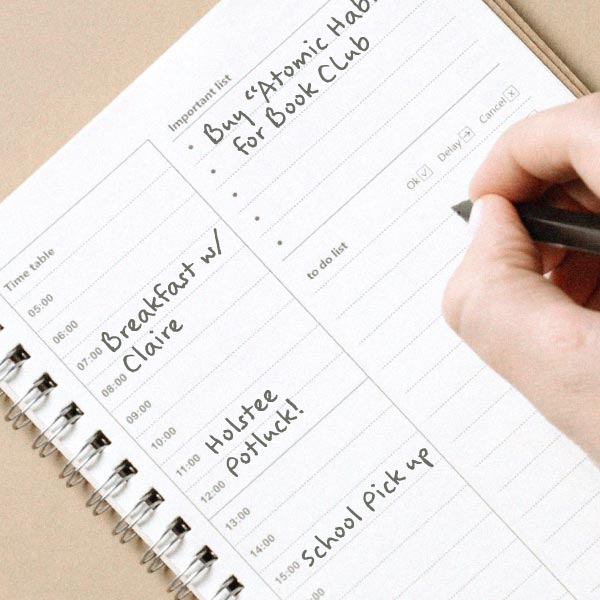 Important list
Buy "Atomic
for Book Club
Ok Delay Cancel
to do list
Time table
05:00
06:00
07:00 Breakfast w/
08:00 Claire
09:00
10:00
11:00 Holstee
12:00 Potluck!
13:00
14:00
15:00 School Pick up